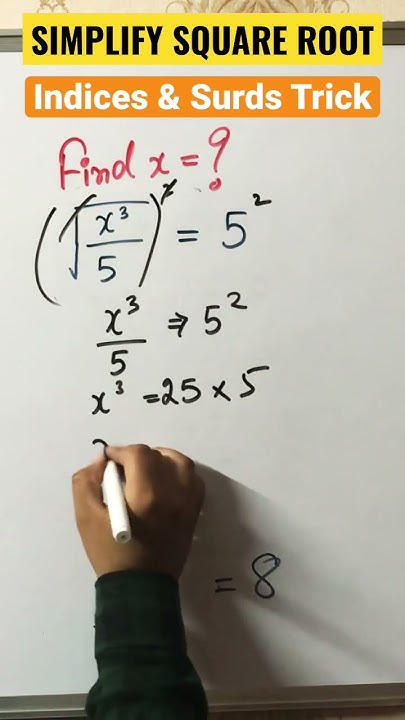 SIMPLIFY SQUARE ROOT
Indices & Surds Trick
Find x = ?
(√(x³/5))² = 5²
x³/5 ⇒ 5²
x³ = 25 × 5
= 8